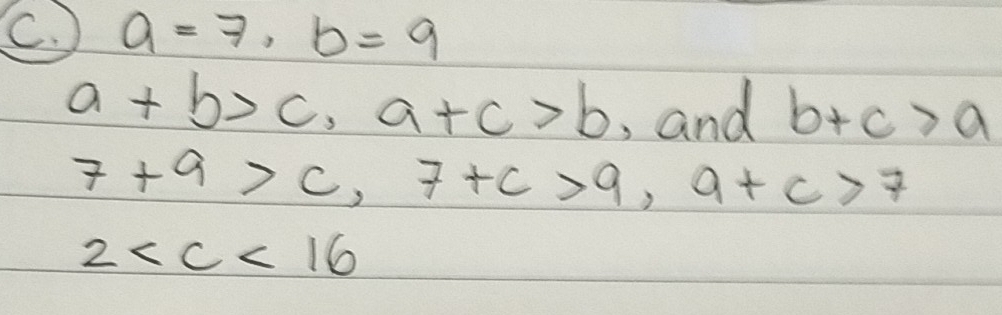 C. a = 7, b = 9
a + b > c, a + c > b, and b + c > a
7 + 9 > c, 7 + c > 9, 9 + c > 7
2 < c < 16